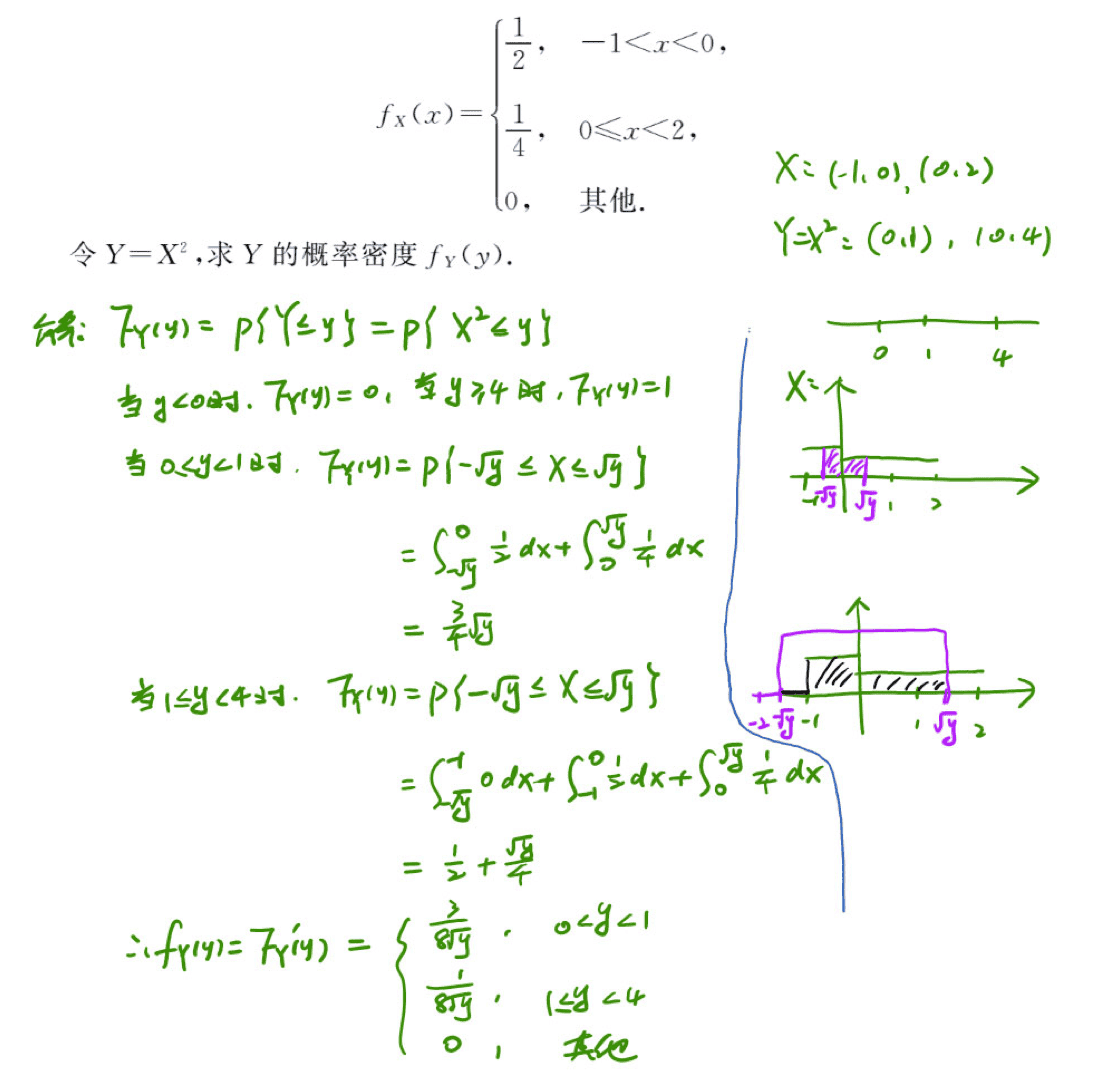 f_X(x)={ 1/2, -1<x<0,
1/4, 0≤x<2,
0, 其他.
令 Y=X²,求 Y 的概率密度 f_Y(y).
X: (-1,0),(0,2)
Y=X²: (0,1), (0,4)
解: F_Y(y)= P{Y≤y}=P{X²≤y}
当 y<0时. F_Y(y)=0, 当 y≥4时, F_Y(y)=1
当 0≤y<1时. F_Y(y)=P{-√y ≤ X≤√y}
= ∫_{-√y}^{0} 1/2 dx+∫_{0}^{√y} 1/4 dx
= 3/4 √y
当 1≤y<4时. F_Y(y)=P{-√y ≤ X≤√y}
= ∫_{-√y}^{-1} 0 dx+∫_{-1}^{0} 1/2 dx+∫_{0}^{√y} 1/4 dx
= 1/2 + √y/4
∴ f_Y(y)=F_Y'(y) = { 3/(8√y), 0<y<1
1/(8√y), 1≤y<4
0, 其他
0 1 4
X:
-1 -√y √y 1 2
-2 -√y -1 1 √y 2